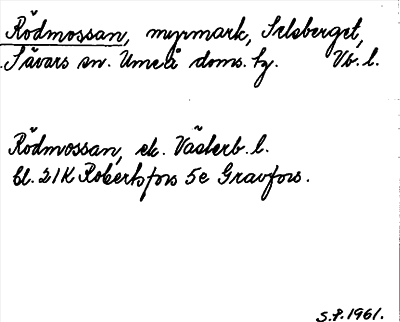 Rödmossan, myrmark, Selsberget,
Sävars sn. Umeå doms. tg. Vb. l.
Rödmossan, ek. Västerb. l.
bl. 21K Robertsfors 5e Gravfors.
S.P. 1961.